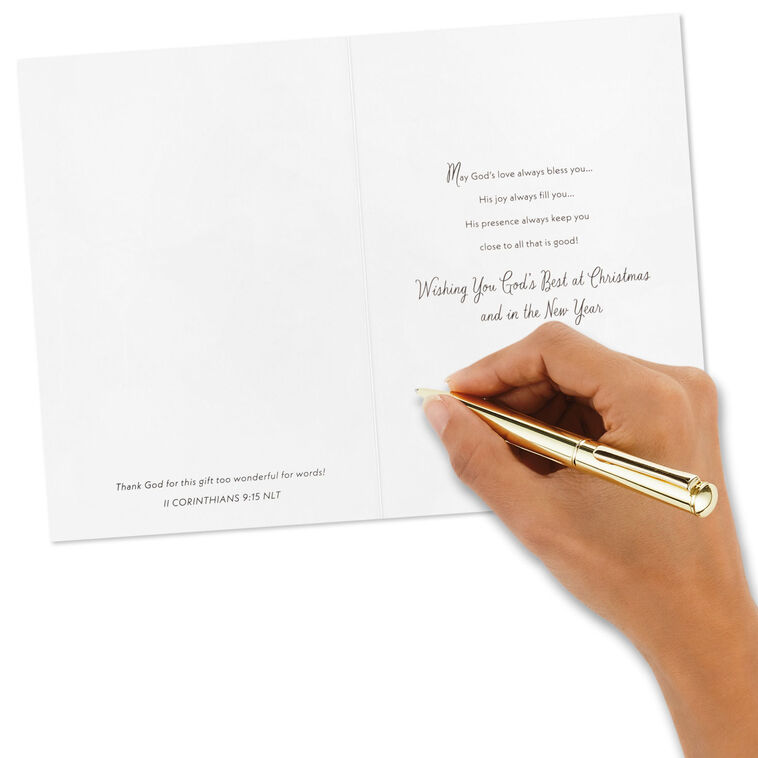 Thank God for this gift too wonderful for words!
II CORINTHIANS 9:15 NLT
May God's love always bless you...
His joy always fill you...
His presence always keep you
close to all that is good!
Wishing You God's Best at Christmas
and in the New Year